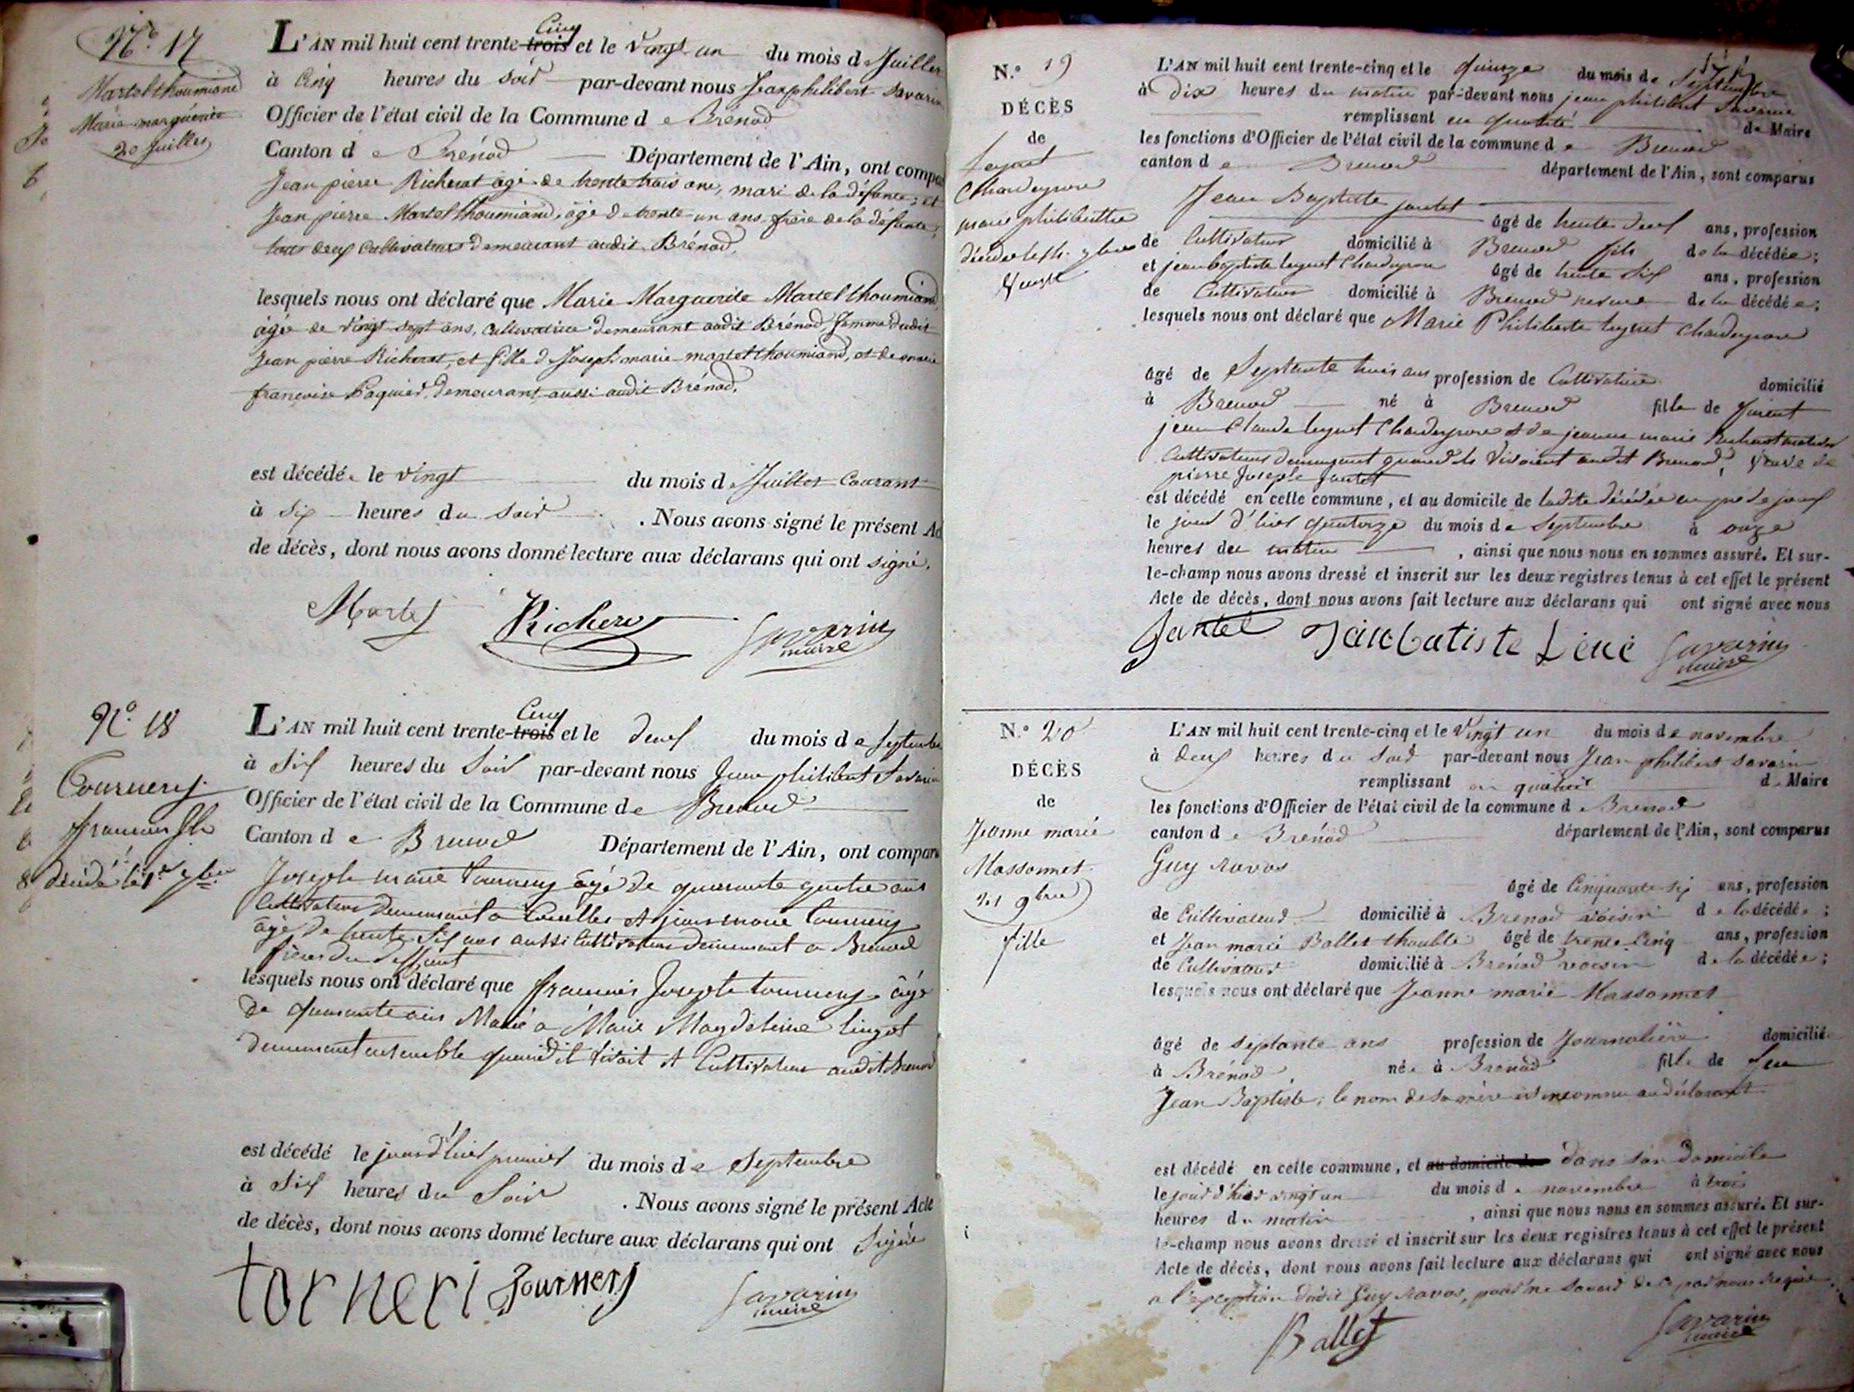 N.° 17
Martel thoumiand
Marie marguerite
20 Juillet
L'AN mil huit cent trente-trois Cinq et le vingt un du mois de Juillet
à Cinq heures du soir par-devant nous Jean philibert Savarin
Officier de l'état civil de la Commune de Brénod
Canton de Brénod Département de l'Ain, ont compar
Jean pierre Richerot âgé de trente trois ans, mari de la défunte; et
Jean pierre Martel thoumiand, âgé de trente un ans, frère de la défunte,
tous deux Cultivateurs demeurant audit Brénod,
lesquels nous ont déclaré que Marie Marguerite Martel thoumiand
âgée de vingt sept ans, Cultivatrice demeurant audit Brénod, femme dudit
Jean pierre Richerot, et fille de Joseph marie martel thoumiand, et de marie
françoise Paquier, demeurant aussi audit Brénod,
est décédée le vingt du mois de Juillet Courant
à Six heures du Soir . Nous avons signé le présent Ac
de décès, dont nous avons donné lecture aux déclarans qui ont signé.
Martel Richerot Savarin
maire
N.° 18
Tournery
françois Jh
décédé le 1er 7bre
L'AN mil huit cent trente-trois Cinq et le deux du mois de Septembre
à Six heures du Soir par-devant nous Jean philibert Savarin
Officier de l'état civil de la Commune de Brenod
Canton de Brenod Département de l'Ain, ont comparu
Joseph marie tournery âgé de quarante quatre ans
Cultivateur demeurant à et jean marie tournery
âgé de trente Six ans aussi Cultivateur demeurant a Brenod
frères du deffunt
lesquels nous ont déclaré que françois Joseph tournery âgé
de quarante ans Marié a Marie Magdeleine
demeurant ensemble quand il vivait et Cultivateur audit Brenod
est décédé le jour d'hier premier du mois de Septembre
à Six heures du Soir . Nous avons signé le présent Acte
de décès, dont nous avons donné lecture aux déclarans qui ont Signé
torneri Tournery Savarin
maire
N.° 19
DÉCÈS
de
Leynet
Chandeyron
marie philiberthe
décédée le 14 7bre
Veuve
L'AN mil huit cent trente-cinq et le quinze du mois de Septembre
à Dix heures du matin par-devant nous jean philibert Savarin
remplissant en qualité de Maire
les fonctions d'Officier de l'état civil de la commune de Brenod
canton de Brenod département de l'Ain, sont comparus
Jean Baptiste jantet
âgé de trente deux ans, profession
de Cultivateur domicilié à Brenod fils de la décédée;
et jean baptiste Leynet Chandeyron âgé de trente Six ans, profession
de Cultivateur domicilié à Brenod neveu de la décédée;
lesquels nous ont déclaré que Marie Philiberte Leynet Chandeyron
âgé de Septante trois ans profession de Cultivatrice domicilié
à Brenod né à Brenod fille de furent
jean Claude Leynet Chandeyron et de jeanne marie
Cultivateurs demeurant quand ils vivoient audit Brenod, Veuve de
pierre Joseph jantet
est décédé en celle commune, et au domicile de ladite décédée
le jour d'hier quatorze du mois de Septembre à onze
heures du matin , ainsi que nous nous en sommes assuré. Et sur-
le-champ nous avons dressé et inscrit sur les deux registres tenus à cet effet le présent
Acte de décès, dont nous avons fait lecture aux déclarans qui ont signé avec nous
Jantet Janbatiste Léné Savarin
maire
N.° 20
DÉCÈS
de
Jeanne marie
Massonnet
21 9bre
fille
L'AN mil huit cent trente-cinq et le Vingt un du mois de novembre
à deux heures du Soir par-devant nous Jean philibert Savarin
remplissant en qualité de Maire
les fonctions d'Officier de l'état civil de la commune de Brenod
canton de Brénod département de l'Ain, sont comparus
Guy Ravos
âgé de Cinquante six ans, profession
de Cultivateur domicilié à Brénod voisin de la décédée;
et Jean marie Ballet thouble âgé de trente Cinq ans, profession
de Cultivateur domicilié à Brénod voisin de la décédée;
lesquels nous ont déclaré que Jeanne marie Massonnet
âgé de Septante ans profession de Journalière domicilié
à Brénod, née à Brénod fille de feu
Jean Baptiste, le nom de sa mère est inconnu au déclarant
est décédé en celle commune, et au domicile de dans son domicile
le jour d'hier vingt un du mois de novembre à trois
heures du matin , ainsi que nous nous en sommes assuré. Et sur-
le-champ nous avons dressé et inscrit sur les deux registres tenus à cet effet le présent
Acte de décès, dont nous avons fait lecture aux déclarans qui ont signé avec nous
a l'exception dudit Guy Ravos, pour ne Savoir de ce par nous Requis
Ballet Savarin
maire